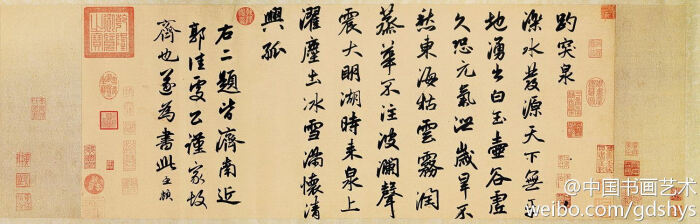 趵突泉
濼水發源天下無平
地湧出白玉壺谷虛
久恐元氣泄歲旱不
愁東海枯雲霧潤
蒸華不注波瀾聲
震大明湖時來泉上
濯塵土冰雪滿懷清
興孤
右二題皆濟南近
郭佳處公謹家故
齊也遂為書此孟頫
@中国书画艺术
weibo.com/gdshys